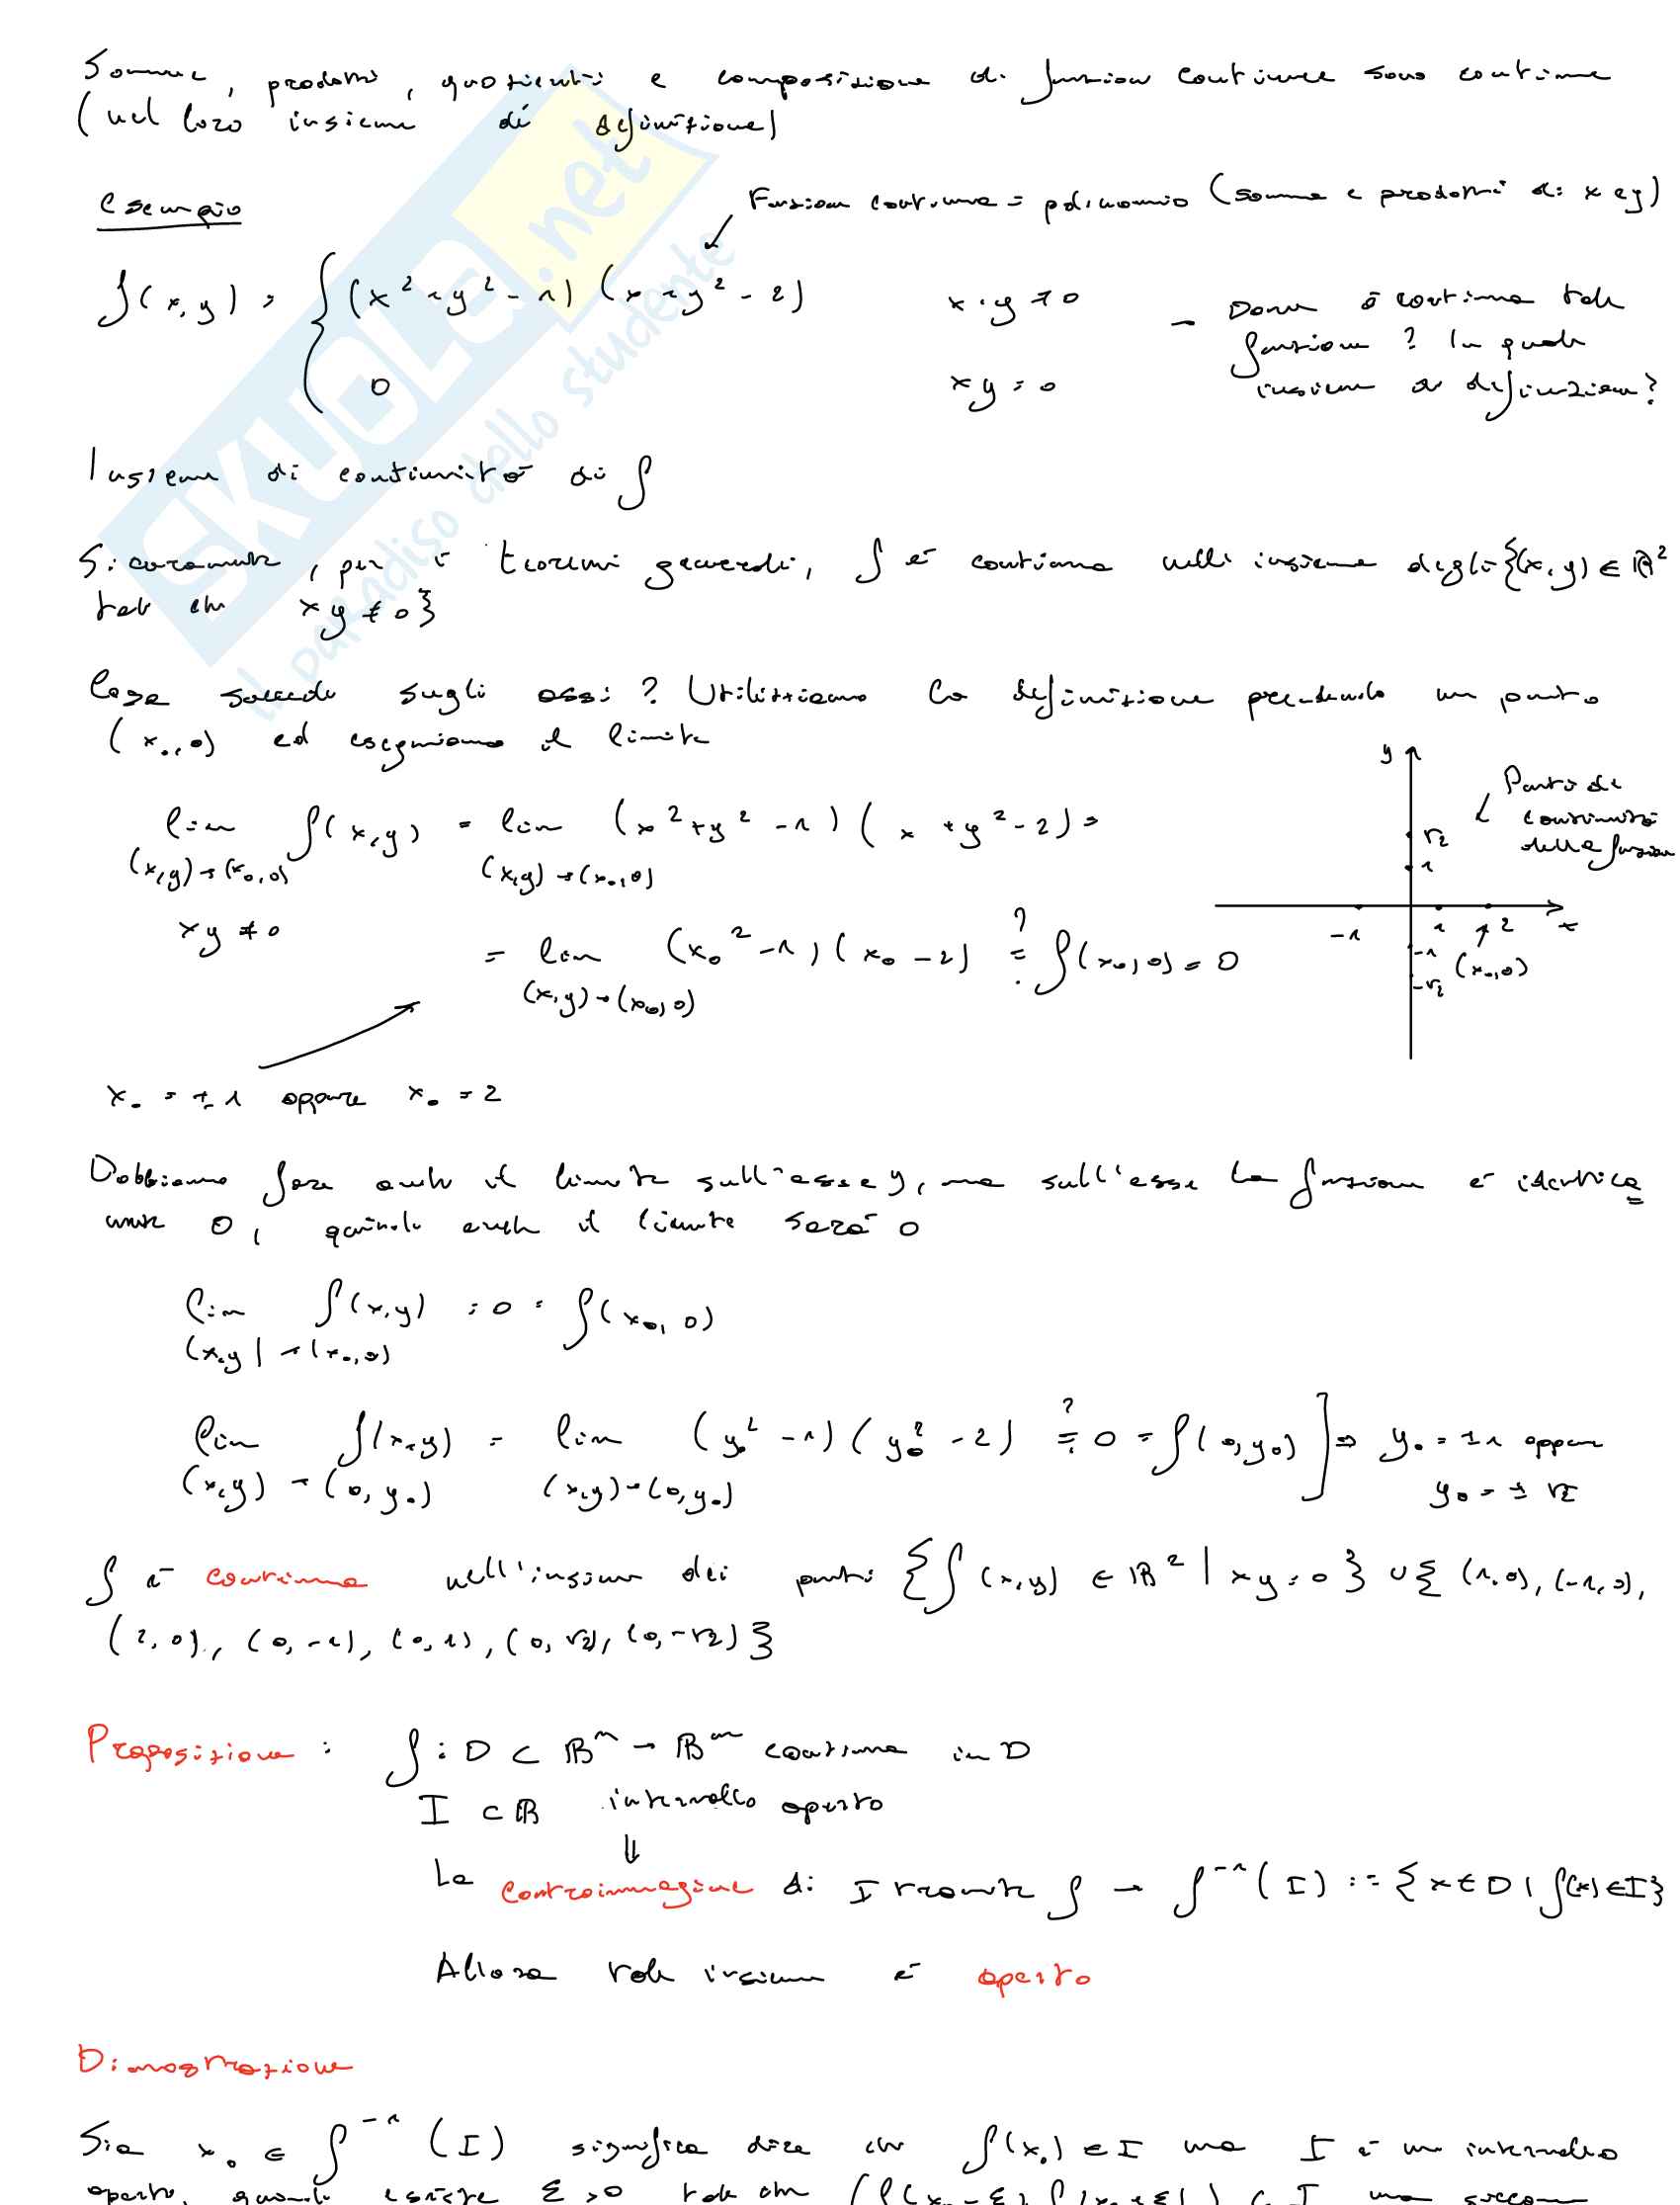 Somme, prodotti, quozienti e composizione di funzioni continue sono continue
(nel loro insieme di definizione)
Esempio
Funzione continua = polinomio (somma e prodotti di x e y)
f(x,y) = { (x²+y²-1) (x+y²-2) x·y ≠ 0
0 xy = 0
- Dove è continua tale
funzione? In quale
insieme di definizione?
Insieme di continuità di f
Sicuramente, per i teoremi generali, f è continua nell'insieme degli {(x,y) ∈ ℝ²
tale che xy ≠ 0}
Cosa succede sugli assi? Utilizziamo la definizione prendendo un punto
(x₀,0) ed eseguiamo il limite
lim f(x,y) = lim (x²+y²-1) (x+y²-2) =
(x,y)→(x₀,0) (x,y)→(x₀,0)
xy ≠ 0
= lim (x₀²-1) (x₀-2) =? f(x₀,0) = 0
(x,y)→(x₀,0)
y
Punti di
continuità
della funzione
√2
1
-1 1 2 x
-1
(x₀,0)
-√2
x₀ = ±1 oppure x₀ = 2
Dobbiamo fare anche il limite sull'asse y, ma sull'asse la funzione è identica
mente 0, quindi anche il limite sarà 0
lim f(x,y) = 0 = f(x₀,0)
(x,y)→(x₀,0)
lim f(x,y) = lim (y₀²-1) (y₀²-2) =? 0 = f(0,y₀) ] ⇒ y₀ = ±1 oppure
(x,y)→(0,y₀) (x,y)→(0,y₀) y₀ = ±√2
f è continua nell'insieme dei punti {f(x,y) ∈ ℝ² | xy = 0} ∪ {(1,0), (-1,0),
(2,0), (0,-1), (0,1), (0,√2), (0,-√2)}
Proposizione: f: D ⊂ ℝⁿ → ℝᵐ continua in D
I ⊂ ℝ intervallo aperto
⇓
La controimmagine di I tramite f → f⁻¹(I) := {x ∈ D | f(x) ∈ I}
Allora tale insieme è aperto
Dimostrazione
Sia x₀ ∈ f⁻¹(I) significa dire che f(x₀) ∈ I ma I è un intervallo
aperto, quindi esiste ε > 0 tale che
SKUOLA.net
il paradiso dello studente